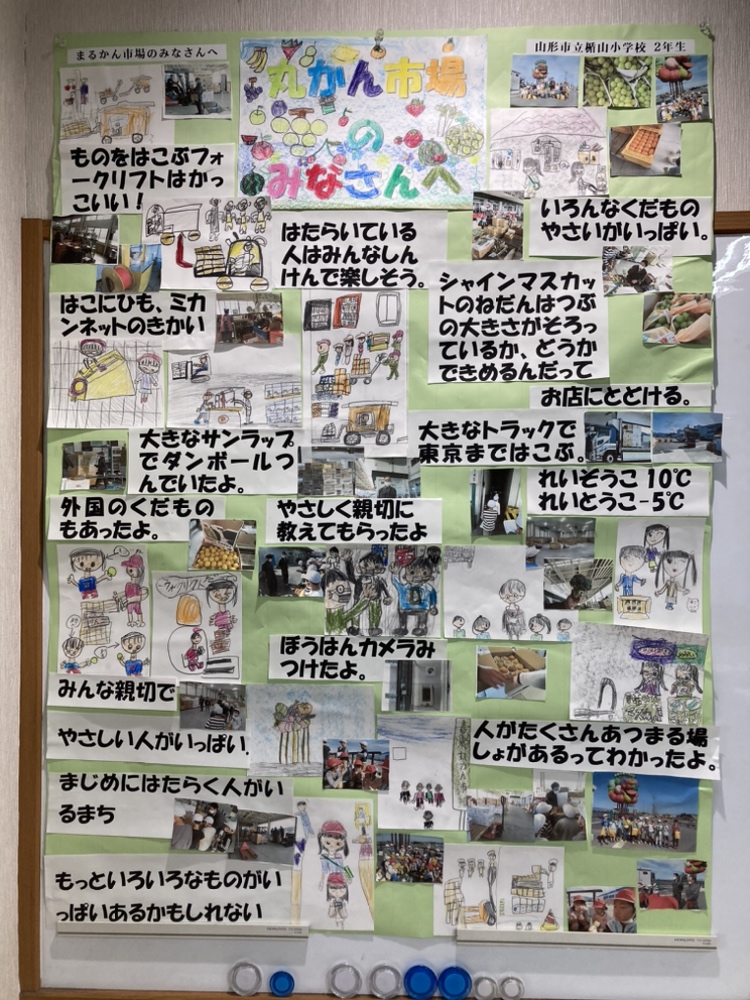 まるかん市場のみなさんへ
山形市立楯山小学校 2年生
丸かん市場
の
みなさんへ
ものをはこぶフォ
ークリフトはかっ
こいい！
はたらいている
人はみんなしん
けんで楽しそう。
いろんなくだもの
やさいがいっぱい。
はこにひも、ミカ
ンネットのきかい
シャインマスカッ
トのねだんはつぶ
の大きさがそろっ
ているか、どうか
できめるんだって
お店にとどける。
大きなサンラップ
でダンボールつ
んでいたよ。
大きなトラックで
東京まではこぶ。
れいぞうこ 10℃
れいとうこ-5℃
外国のくだもの
もあったよ。
やさしく親切に
教えてもらったよ
ぼうはんカメラみ
つけたよ。
みんな親切で
やさしい人がいっぱい
人がたくさんあつまる場
しょがあるってわかったよ。
まじめにはたらく人がい
るまち
もっといろいろなものがい
っぱいあるかもしれない